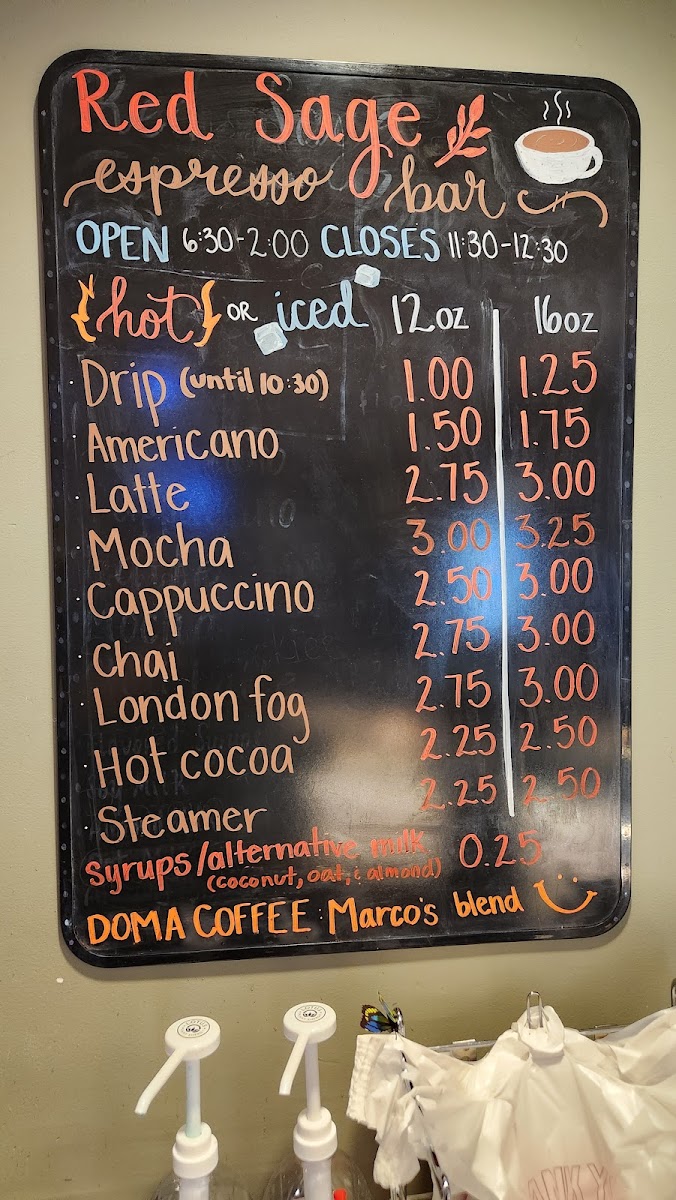 Red Sage
espresso bar
OPEN 6:30-2:00 CLOSES 11:30-12:30
{hot} OR iced 12oz 16oz
· Drip (until 10:30) 1.00 1.25
· Americano 1.50 1.75
· Latte 2.75 3.00
· Mocha 3.00 3.25
· Cappuccino 2.50 3.00
· Chai 2.75 3.00
· London fog 2.75 3.00
· Hot cocoa 2.25 2.50
· Steamer 2.25 2.50
syrups/alternative milk 0.25
(coconut, oat, & almond)
DOMA COFFEE: Marco's blend